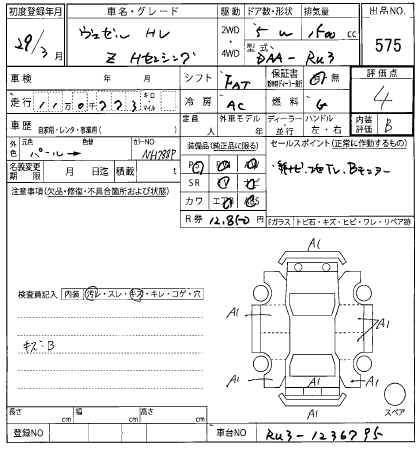 初度登録年月 車名・グレード 駆動 ドア数・形状 排気量 出品NO.
29/3月 ヴェゼル HV 2WD・4WD 5 W 1500 cc 575
Z Hセンシング 型式 DAA-RU3
車検 年 月 シフト FAT 保証書 有 無 評価点
走行 キロ マイル 冷房 AC 燃料 G 4
車歴 自家用・レンタ・事業用( ) 定員 人 外車モデル 年 ディーラー 並行 ハンドル 左・右 内装評価 B
外色 元色 パール 色替 カラーNO NH788P 装備品(純正品に限る) セールスポイント(正常に作動するもの)
名義変更期限 月 日迄 積載 t SR
注意事項(欠品・修復・不具合箇所および状態) カワ
R券 12,850 Fガラス トビ石・キズ・ヒビ・ワレ・リペア跡
検査員記入 内装 汚レ・スレ・キズ・キレ・コゲ・穴
キズ・B
A1
A1
A1
A1
A1
A1
A1
スペア
長さ cm 幅 cm 高さ cm
登録NO 車台NO RU3-1236795